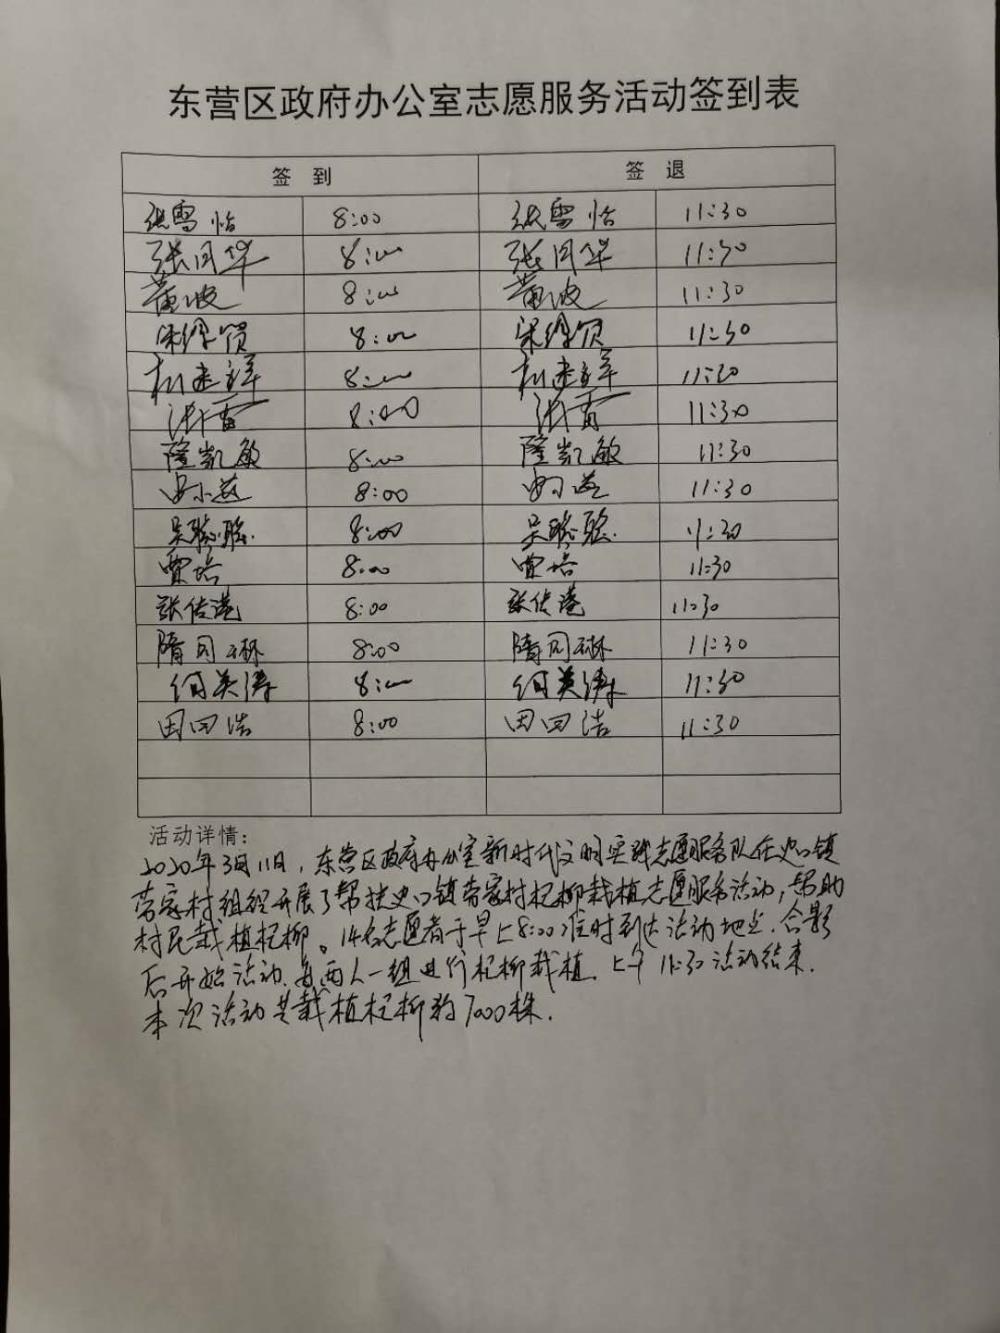 东营区政府办公室志愿服务活动签到表
签 到 签 退
张雪怡 8:00 张雪怡 11:30
张同华 8:00 张同华 11:30
黄波 8:00 黄波 11:30
8:00 11:30
8:00 11:30
张雷 8:00 张雷 11:30
隆凯敏 8:00 隆凯敏 11:30
8:00 11:30
吴聪聪 8:00 吴聪聪 11:30
贾培 8:00 贾培 11:30
张传港 8:00 张传港 11:30
隋同林 8:00 隋同林 11:30
何英涛 8:00 何英涛 11:30
田四浩 8:00 田四浩 11:30
活动详情:
2020年3月11日,东营区政府办公室新时代文明实践志愿服务队在史口镇
家村组织开展了帮扶史口镇 家村杞柳栽植志愿服务活动,帮助
村民栽植杞柳。14名志愿者于早上8:00准时到达活动地点,合影
后开始活动,每两人一组进行杞柳栽植,上午11:30活动结束.
本次活动共栽植杞柳约7000株.